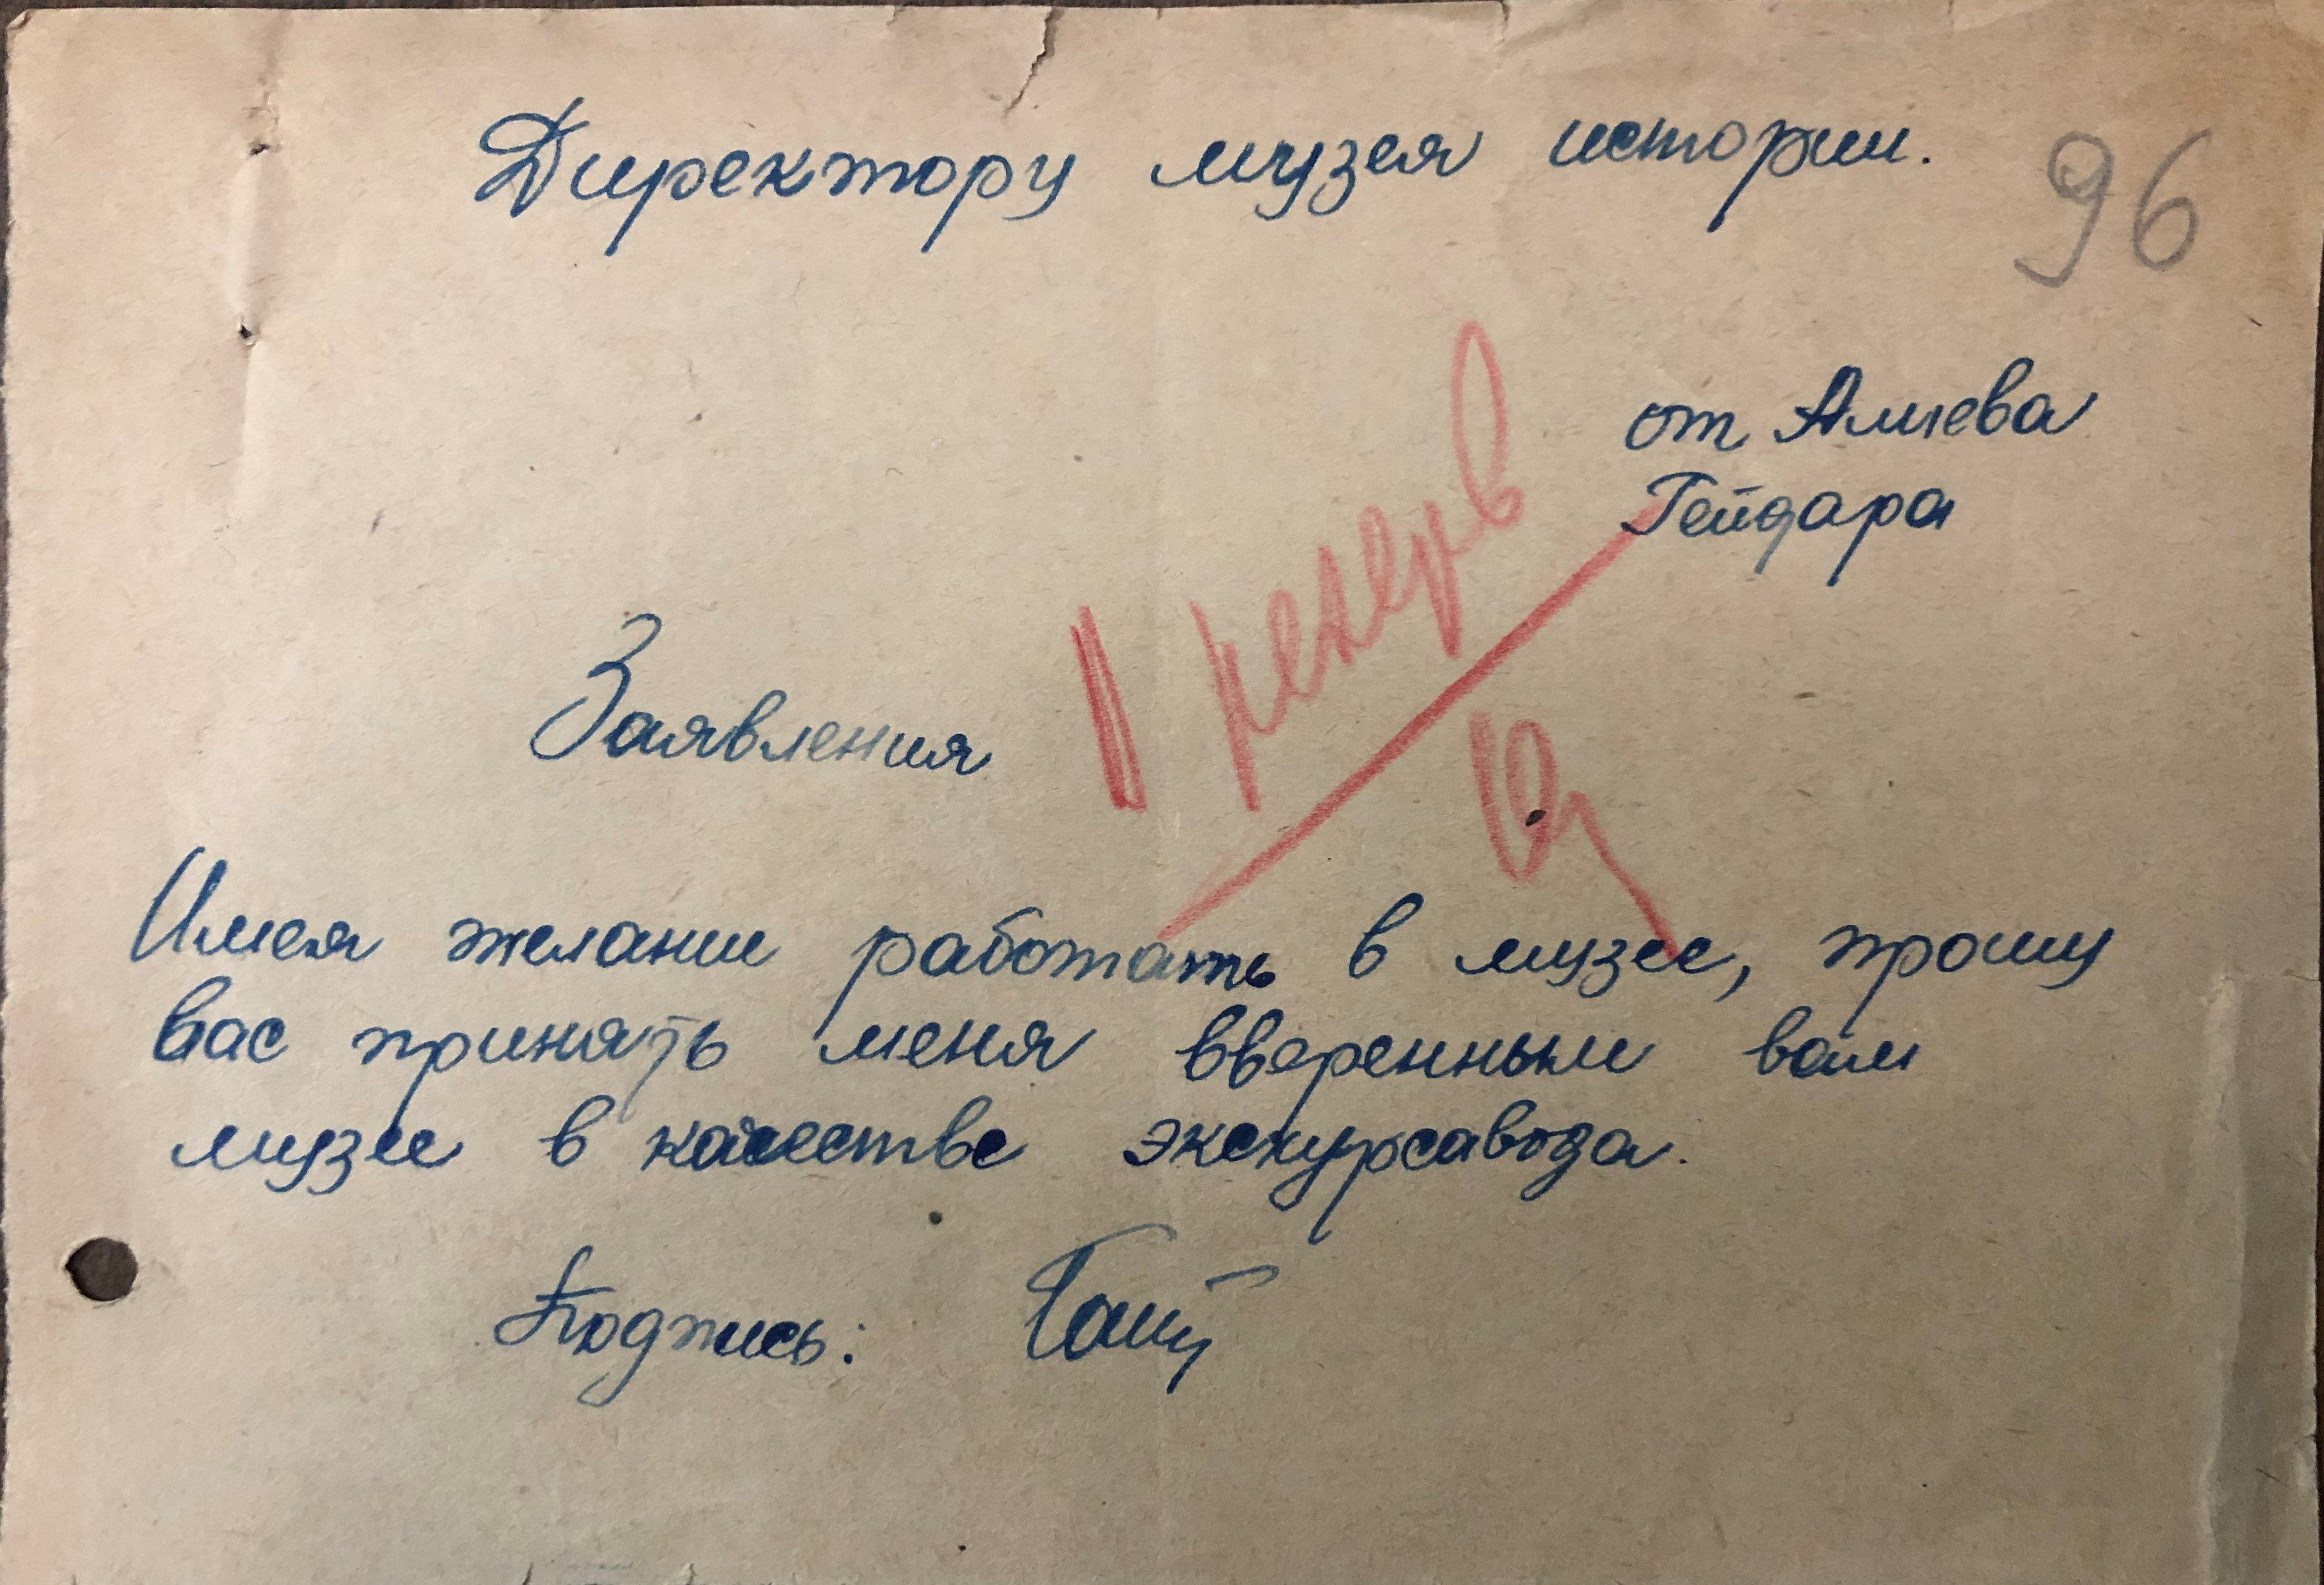 Директору музея истории.
96
от Алиева
Гейдара
Заявления
Имея желание работать в музее, прошу
вас принять меня вверенным вам
музее в качестве экскурсавода.
Подпись: